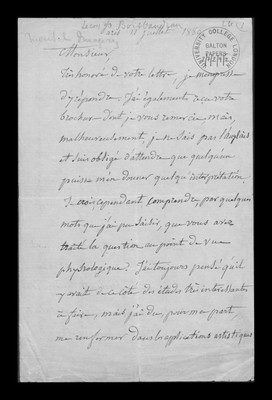 Lecoq de Boisbaudran
Mental Imagery
UNIVERSITY COLLEGE LONDON
GALTON
PAPERS
11 juillet
Monsieur,
Très honoré de votre lettre, je m'empresse
d'y répondre. J'ai également reçu votre
brochure dont je vous remercie mais,
malheureusement, je ne sais pas l'anglais
et suis obligé d'attendre que quelqu'un
puisse m'en donner quelqu'interprétation.
Je crois cependant comprendre, par quelques
mots que j'ai pu saisir, que vous avez
traité la question au point de vue
physiologique? J'ai toujours pensé qu'il
y avait de ce côté des études très intéressantes
à faire, mais j'ai du, pour ma part
me renfermer dans les applications artistiques